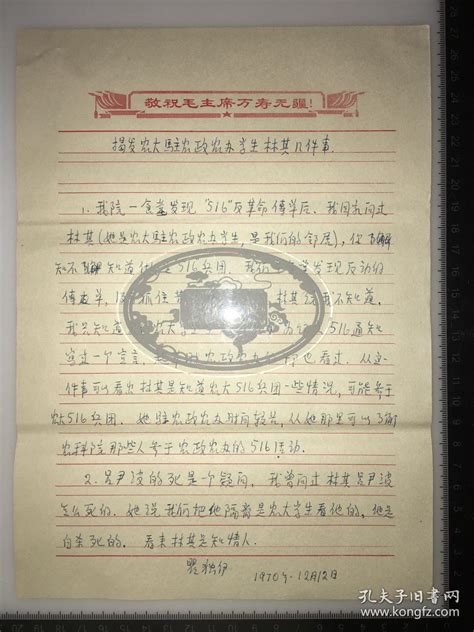 敬祝毛主席万寿无疆!
揭发农大驻农政农办学生林某几件事.
1. 我院一食堂发现"516"反革命传单后, 我因此问过
林某(她是农大驻农政农办学生, 是我们的邻居), 你
知不 知道 516兵团. 我们 发现反动的
传单, 抓住 林某 我不知道,
我只知道 516通知
宣过一个宣言, 农政农办 也看过. 从这
件事可以看出林某是知道农大516兵团一些情况, 可能参于
农大516兵团. 她驻农政农办时间较长, 从她那里可以了解
农科院那些人参于农政农办的516活动.
2. 吴尹波的死是个疑问, 我曾问过林某吴尹波
怎么死的. 她说我们把他隔离是农大学生看他的, 他是
自杀死的. 看来林某是知情人.
瞿独伊 1970年12月12日
孔夫子旧书网
kongfz.com